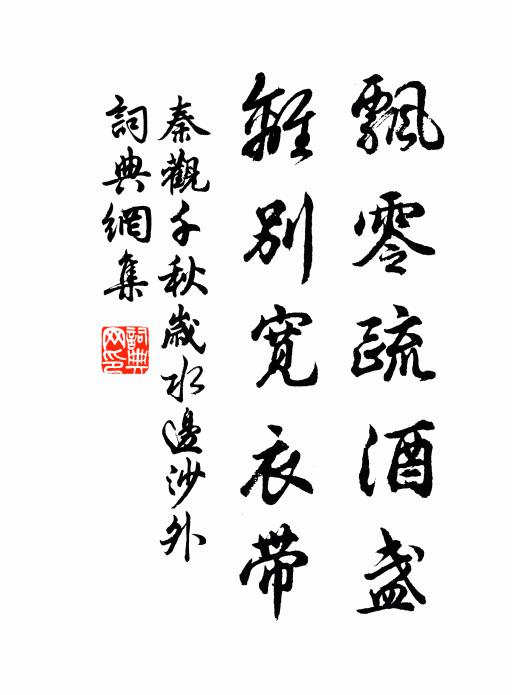 飄零疏酒盞
離別寬衣帶
秦觀千秋歲水邊沙外
詞典網集
詞典網印